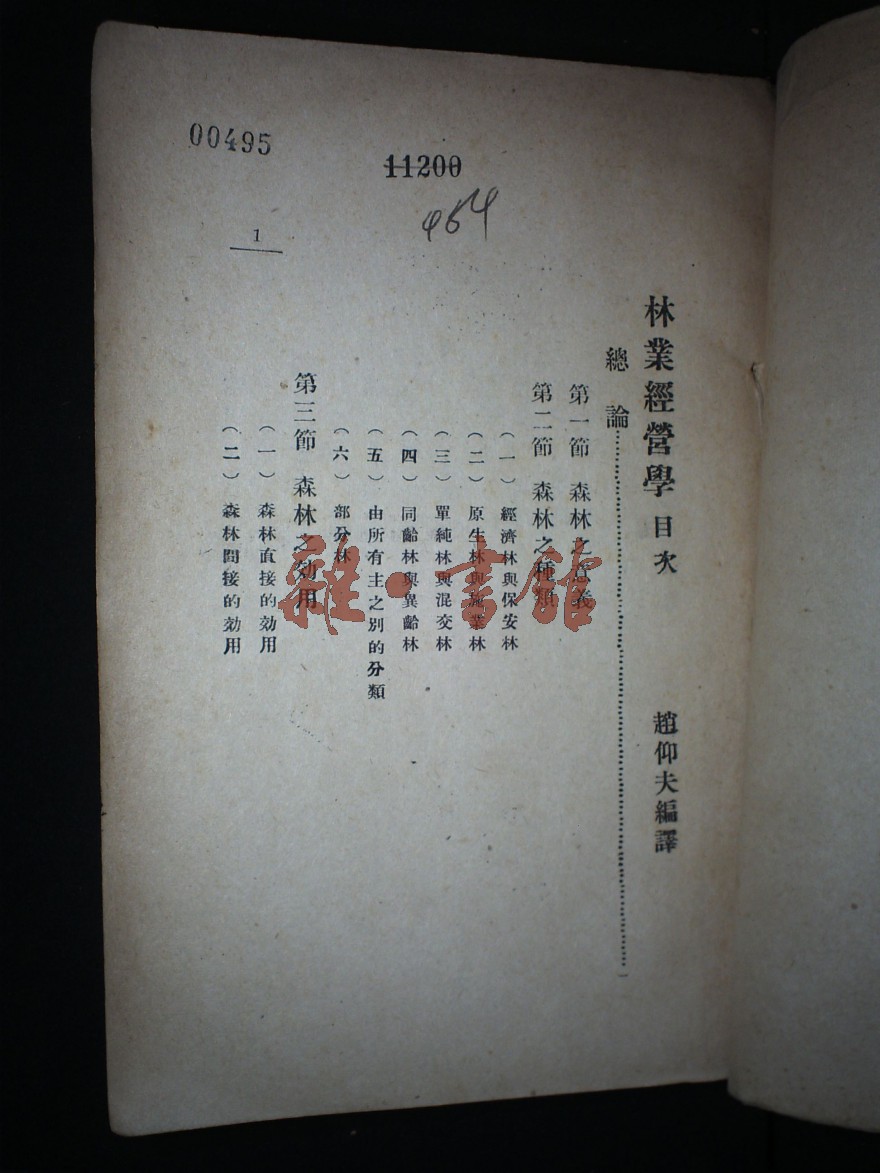 00495
11200
464
1
林業經營學 目次
趙仰夫編譯
總論……一
第一節 森林之意義
第二節 森林之種類
(一) 經濟林與保安林
(二) 原生林與施業林
(三) 單純林與混交林
(四) 同齡林與異齡林
(五) 由所有主之別的分類
(六) 部分林
第三節 森林之効用
(一) 森林直接的効用
(二) 森林間接的効用
雜·書館